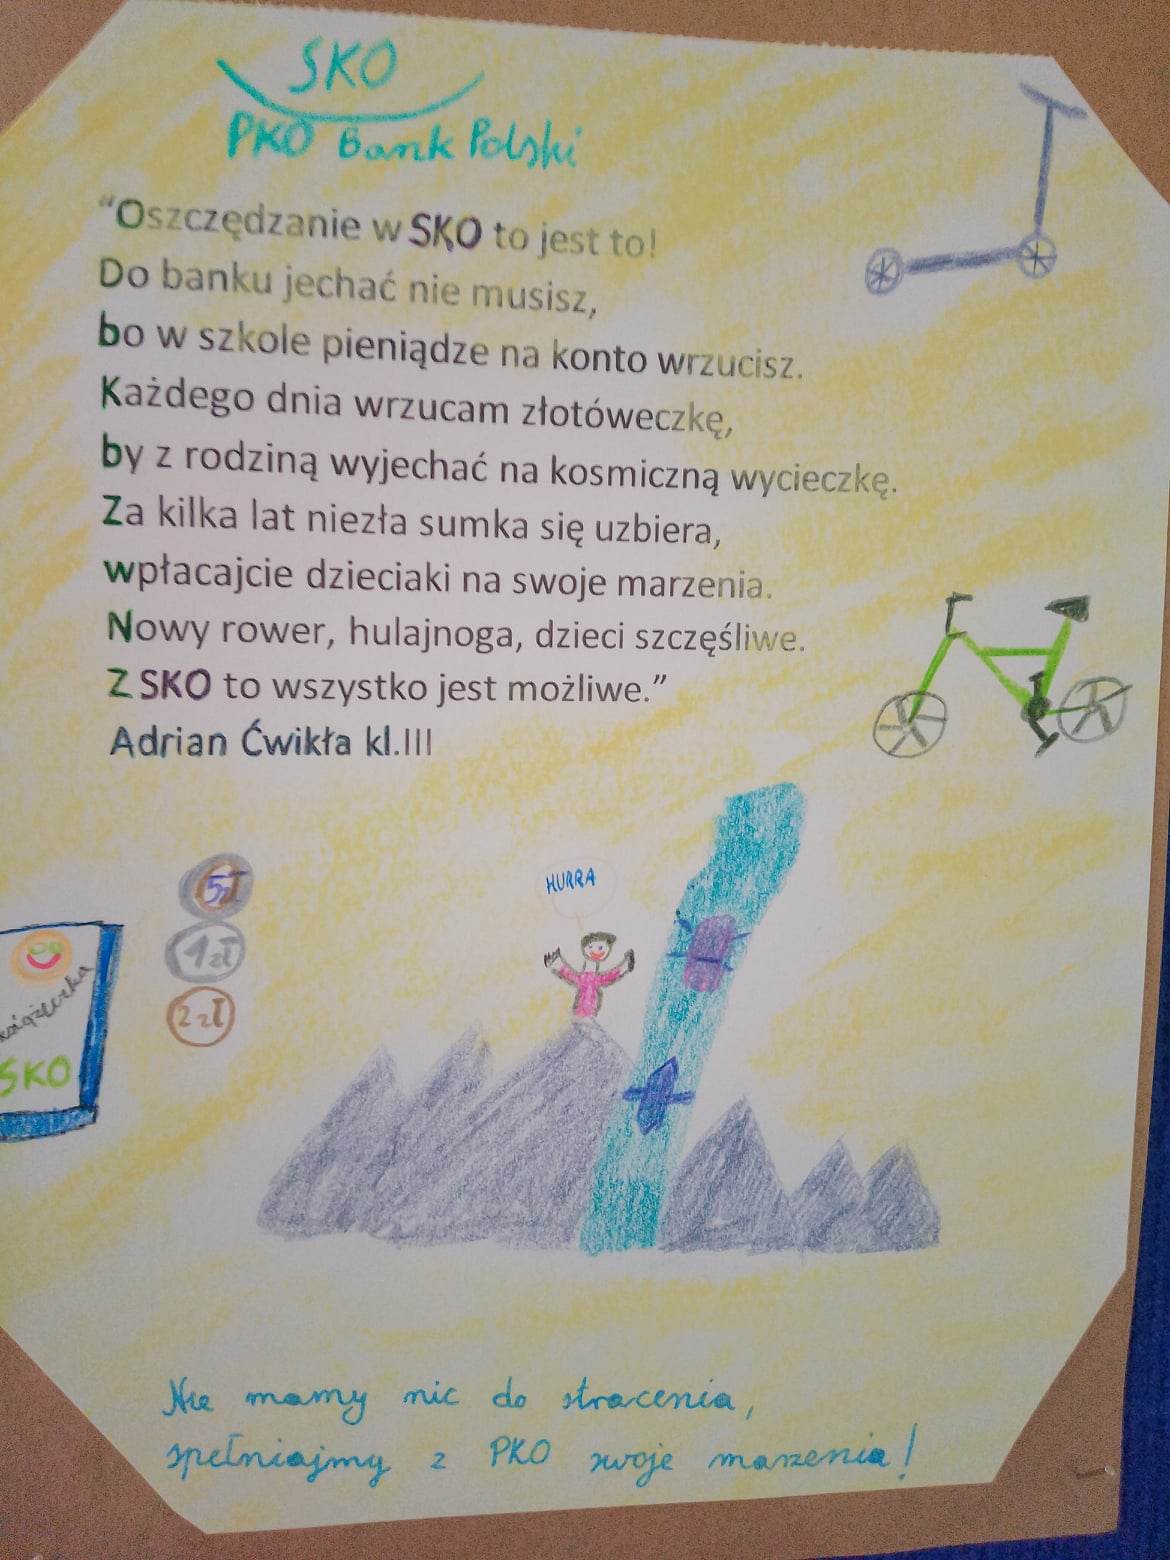 SKO
PKO Bank Polski
"Oszczędzanie w SKO to jest to!
Do banku jechać nie musisz,
bo w szkole pieniądze na konto wrzucisz.
Każdego dnia wrzucam złotóweczkę,
by z rodziną wyjechać na kosmiczną wycieczkę.
Za kilka lat niezła sumka się uzbiera,
wpłacajcie dzieciaki na swoje marzenia.
Nowy rower, hulajnoga, dzieci szczęśliwe.
Z SKO to wszystko jest możliwe."
Adrian Ćwikła kl.III
5zł
1zł
2zł
HURRA
książeczka
SKO
Nie mamy nic do stracenia,
spełniajmy z PKO swoje marzenia!